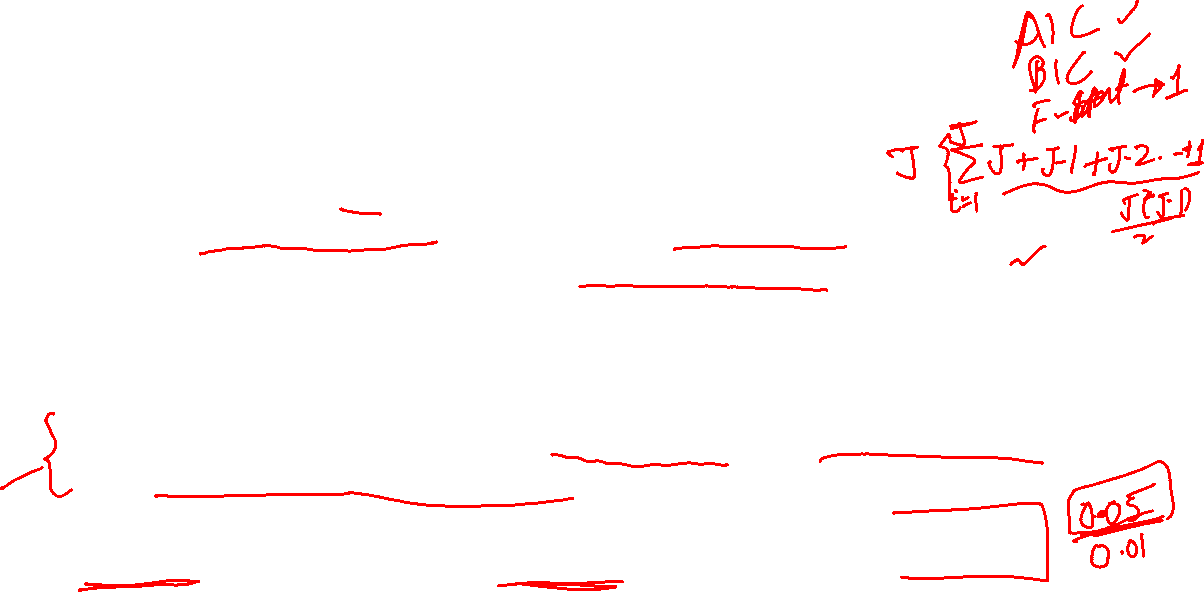 AIC ✓
BIC ✓
F- → 1
J { \sum_{i=1}^{J} J + J-1 + J-2 . - +1
\frac{J(J-1)}{2}
✓
0.05
0.01